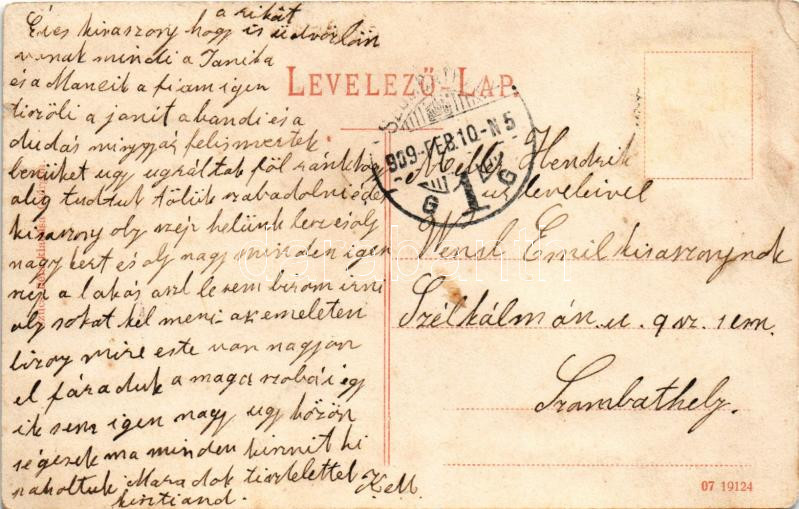 a rikát
Édes kisaszony hogy is üdvözlöm
vanak mindi a Janika
és a Mancik a fiam igen
tisztöli a janit a bandi és a
dudás mingyár felismertek
benüket ugy ugráltak föl ránk hogy
alig tudtuk tölük szabadolni édes
kisaszony oly szép helünk lesz és oly
nagy kert és oly nagy minden igen
nép a lakás azt le nem birom irni
oly sokat kel meni az emeleten
bizony mire este van nagyon
el fáraduk a maga szobái egy
ik sem igen nagy ugy közön
ségesek ma minden kinnit ki
raholtuk Maradok tisztelettel Kell
kisztiand.
LEVELEZŐ-LAP.
909-FEB.10-N5
1
G G
Mlle Hendrik
ur leveleivel
Wensl Emil kisaszonynak
Szélkálmán u. 9 sz. 1 em.
Szombathely.
07 19124
darabanth